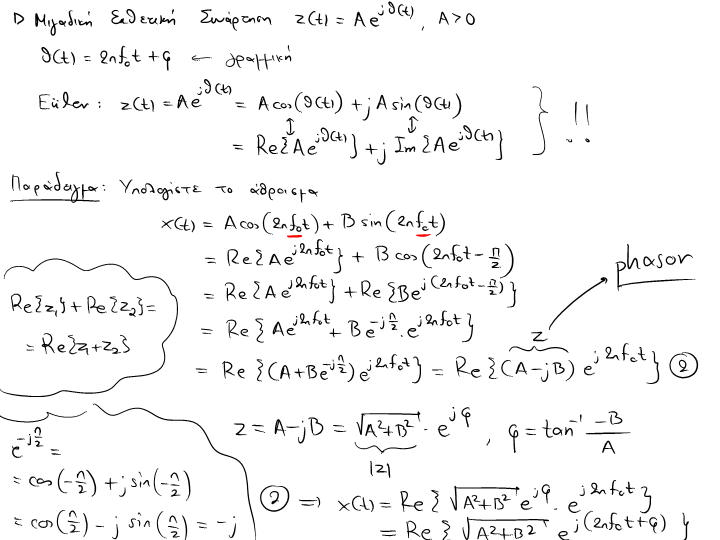 ▷ Μιγαδική Εκθετική Συνάρτηση z(t) = A e^{jϑ(t)}, A>0
ϑ(t) = 2πf₀t + φ ← γραμμική
Euler: z(t) = A e^{jϑ(t)} = A cos(ϑ(t)) + j A sin(ϑ(t))
= Re{A e^{jϑ(t)}} + j Im{A e^{jϑ(t)}} } !!
Παράδειγμα: Υπολογίστε το άθροισμα
x(t) = A cos(2πf₀t) + B sin(2πf₀t)
= Re{A e^{j2πf₀t}} + B cos(2πf₀t - π/2)
= Re{A e^{j2πf₀t}} + Re{B e^{j(2πf₀t - π/2)}}
= Re{A e^{j2πf₀t} + B e^{-jπ/2} · e^{j2πf₀t}}
= Re{(A + B e^{-jπ/2}) e^{j2πf₀t}} = Re{(A - jB) e^{j2πf₀t}} ②
z
phasor
Re{z₁} + Re{z₂} =
= Re{z₁+z₂}
z = A - jB = √(A²+B²) · e^{jφ}, φ = tan⁻¹ -B/A
|z|
e^{-jπ/2} =
= cos(-π/2) + j sin(-π/2)
= cos(π/2) - j sin(π/2) = -j
② ⇒ x(t) = Re{√(A²+B²) e^{jφ} · e^{j2πf₀t}}
= Re{√(A²+B²) e^{j(2πf₀t+φ)}}